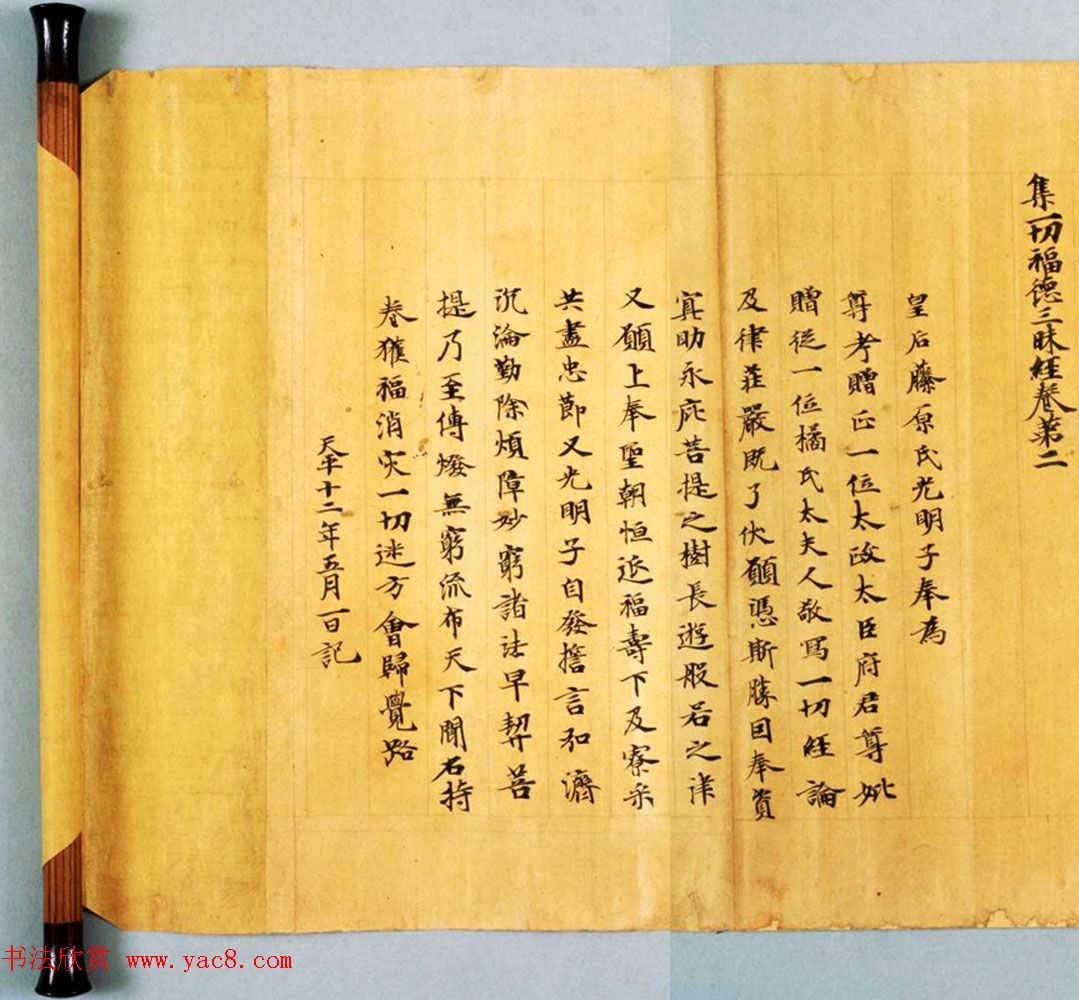 集一切福德三昧經卷第二
皇后藤原氏光明子奉為
尊考贈正一位太政太臣府君尊妣
贈從一位橘氏太夫人敬寫一切經論
及律莊嚴既了伏願憑斯勝因奉資
冥助永庇菩提之樹長遊般若之津
又願上奉聖朝恒延福壽下及寮采
共盡忠節又光明子自發誓言弘濟
沉淪勤除煩障妙窮諸法早契菩
提乃至傳燈無窮流布天下聞名持
卷獲福消灾一切迷方會歸覺路
天平十二年五月一日記
书法欣赏 www.yac8.com